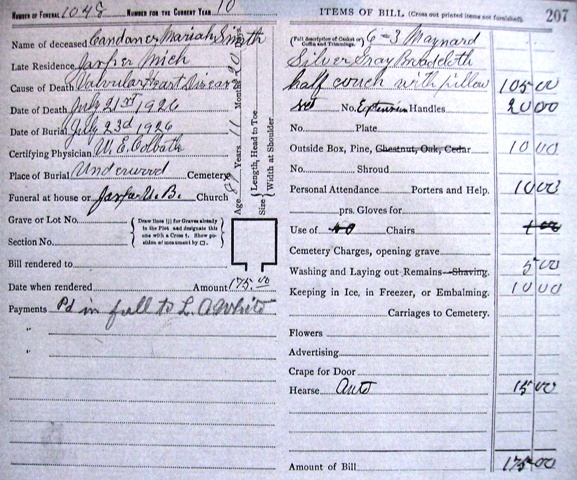 NUMBER OF FUNERAL 1048 NUMBER FOR THE CURRENT YEAR 10
ITEMS OF BILL (Cross out printed items not furnished) 207
Name of deceased Candance Mariah Smith
Late Residence Jasper Mich
Cause of Death Valvular Heart Disease
Date of Death July 21st 1926
Date of Burial July 23d 1926
Certifying Physician W. E. Colbath
Place of Burial Underwood Cemetery
Funeral at house or Jasper U.B. Church
Grave or Lot No.
Section No.
Draw lines for Graves already in the Plot and designate this one with a Cross †. Show position of monument by □.
Bill rendered to
Date when rendered Amount 175.00
Payments Pd in full to L. A White
"
"
Age Years 11 Months 20 Days
Size Length, Head to Toe
Width at Shoulder
(Full description of Casket or Coffin and Trimmings.) 6-3 Maynard
Silver Gray Broadcloth
half couch with pillow 105 00
Set No. Extension Handles 20 00
No. Plate
Outside Box, Pine, Chestnut, Oak, Cedar 10 00
No. Shroud
Personal Attendance Porters and Help. 10 00
prs. Gloves for
Use of 40 Chairs 1 00
Cemetery Charges, opening grave
Washing and Laying out Remains—Shaving. 5 00
Keeping in Ice, in Freezer, or Embalming. 10 00
Carriages to Cemetery.
Flowers
Advertising
Crape for Door
Hearse Auto 15 00
Amount of Bill 175 00